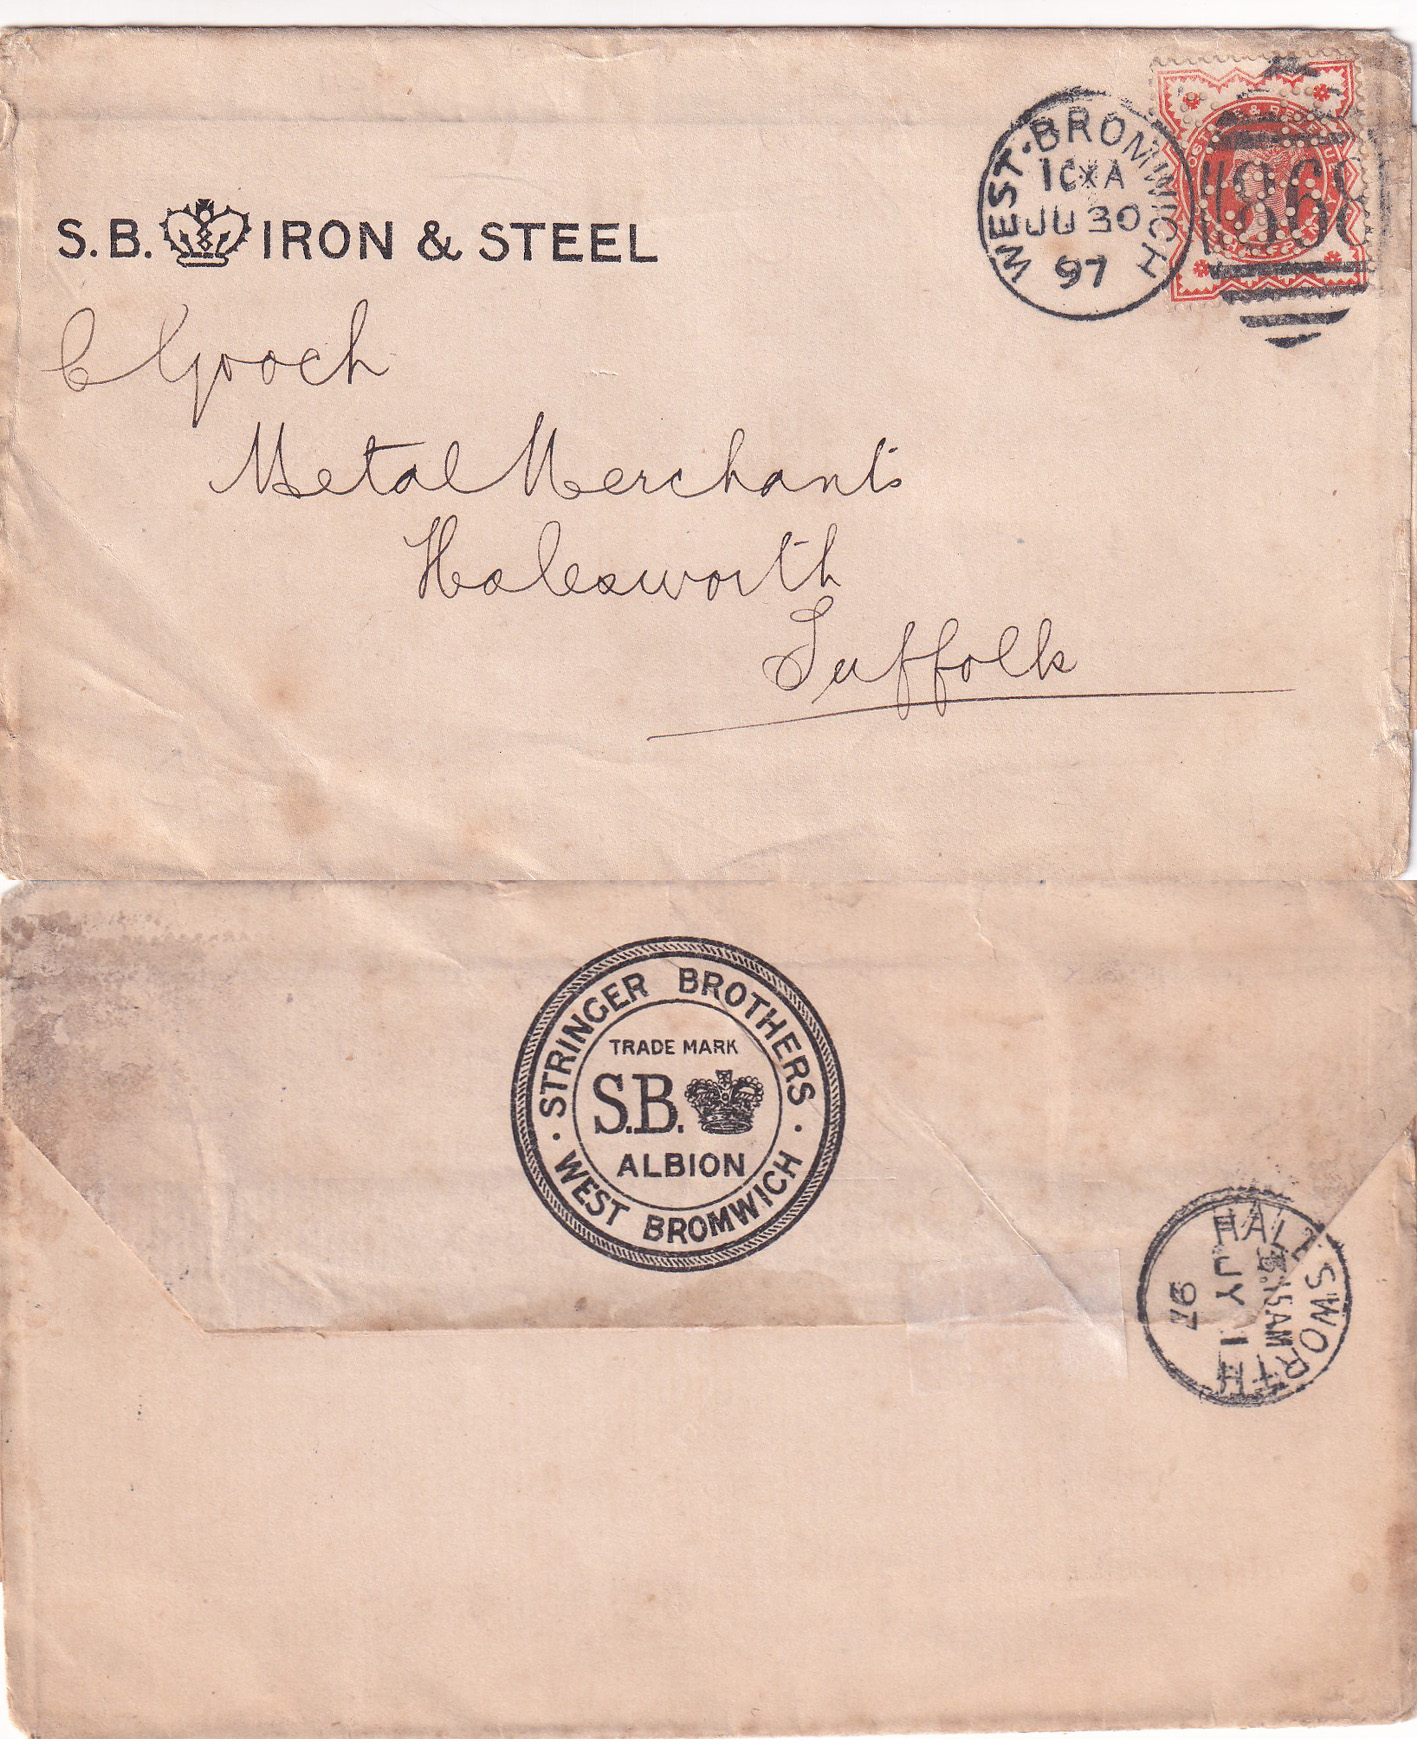 S.B. IRON & STEEL
WEST·BROMWICH
JU 30
97
868
C Gooch
Metal Merchants
Halesworth
Suffolk
STRINGER BROTHERS
TRADE MARK
S.B.
ALBION
· WEST BROMWICH ·
HALESWORTH
JY 1
97